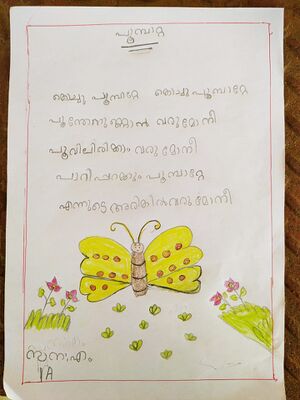 പൂമ്പാറ്റ
കൊച്ചു പൂമ്പാറ്റേ കൊച്ചുപൂമ്പാറ്റേ
പൂന്തേനുണ്ണാൻ വരുമോനീ
പൂവിലിരിക്കാം വരുമോനീ
പാറിപ്പറക്കും പൂമ്പാറ്റേ
എന്നുടെ അരികിൽ വരുമോനീ
സന.എം
1A